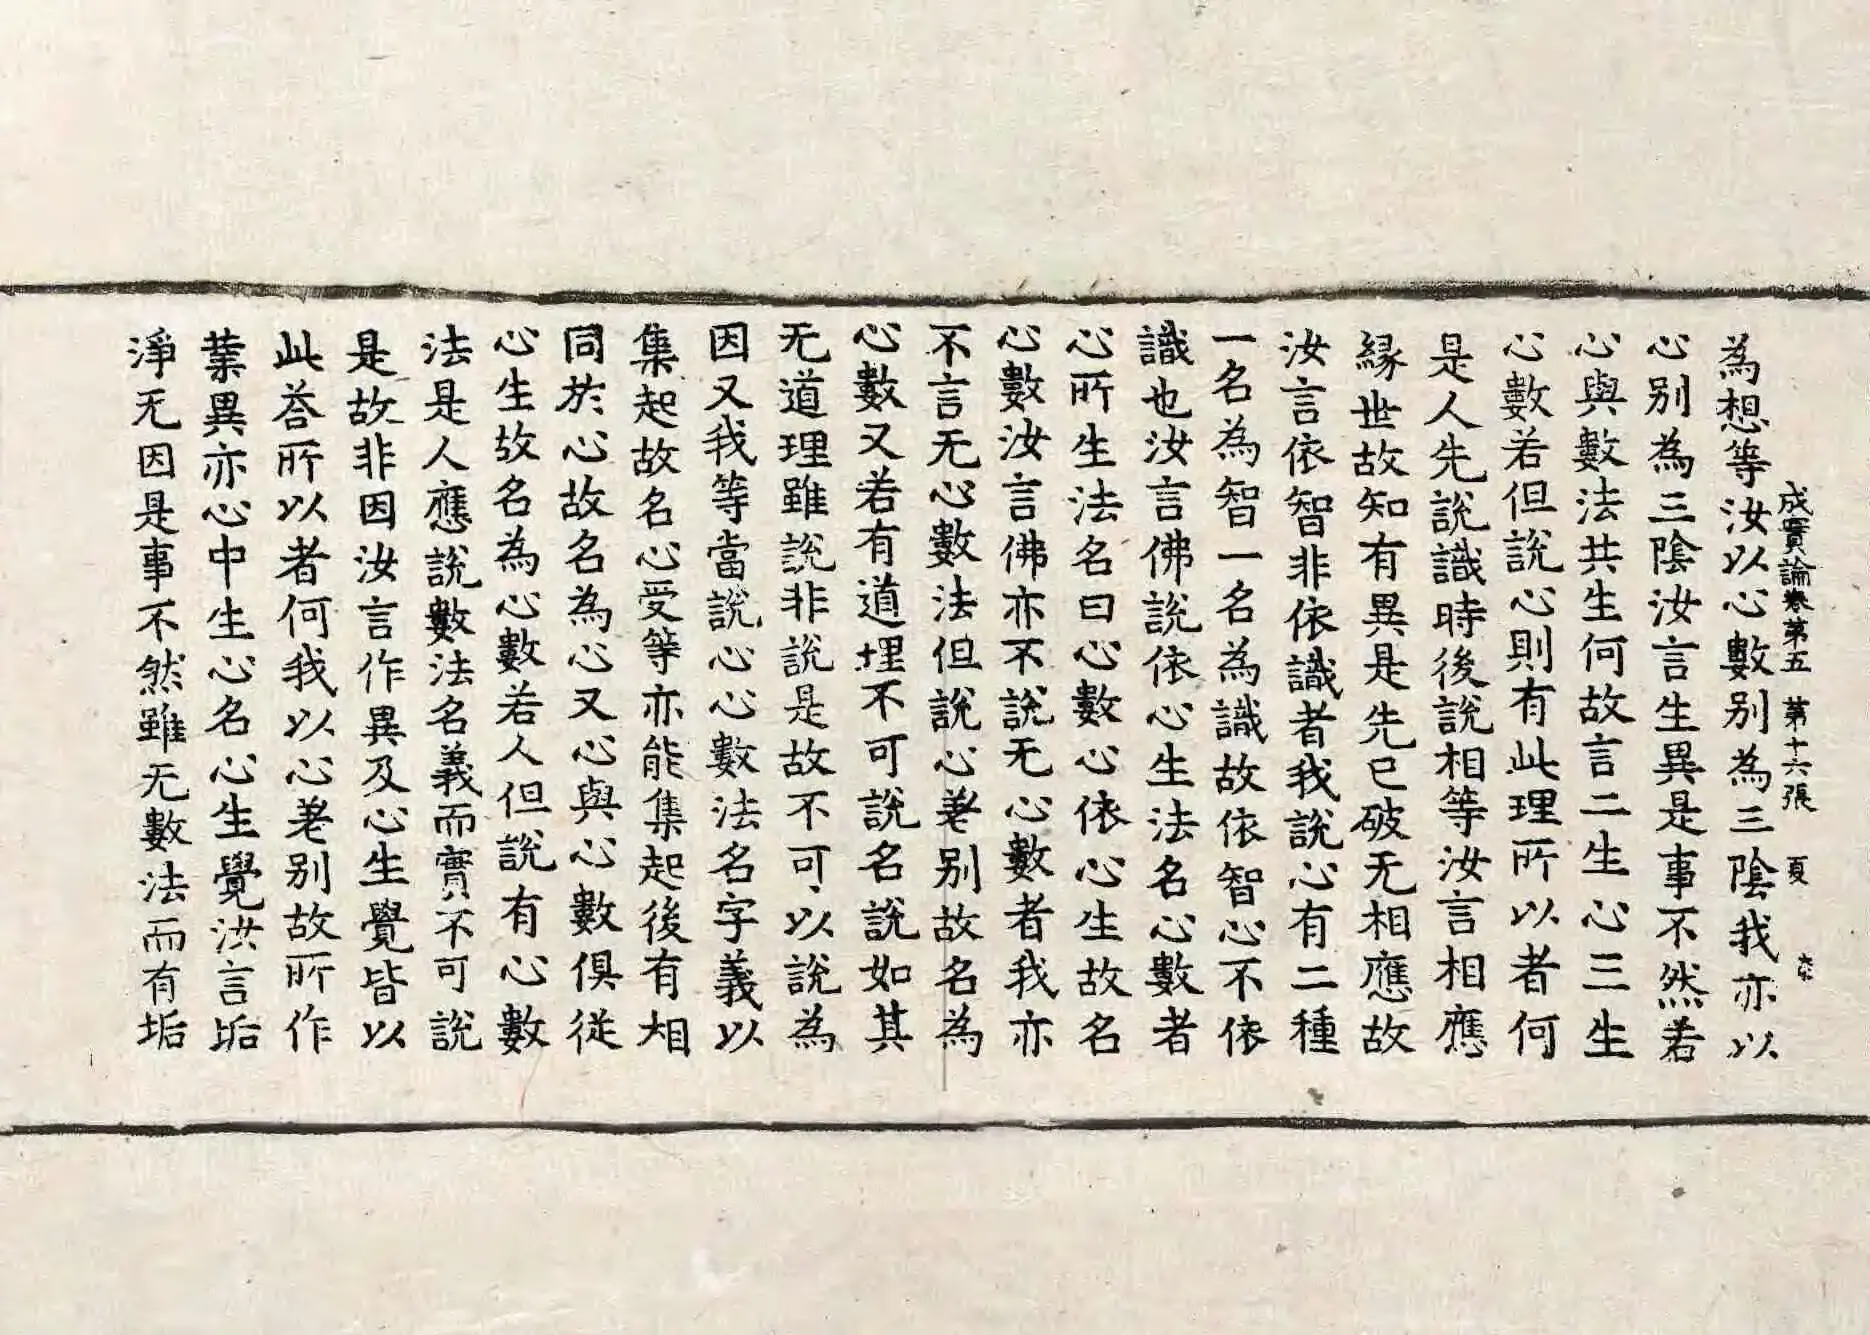 成實論卷第五 第十六張 夏
為想等汝以心數別為三陰我亦以
心別為三陰汝言生異是事不然若
心與數法共生何故言二生心三生
心數若但說心則有此理所以者何
是人先說識時後說相等汝言相應
緣世故知有異是先已破无相應故
汝言依智非依識者我說心有二種
一名為智一名為識故依智心不依
識也汝言佛說依心生法名心數者
心所生法名曰心數心依心生故名
心數汝言佛亦不說无心數者我亦
不言无心數法但說心差別故名為
心數又若有道埋不可說名說如其
无道理雖說非說是故不可以說為
因又我等當說心心數法名字義以
集起故名心受等亦能集起後有相
同於心故名為心又心與心數俱從
心生故名為心數若人但說有心數
法是人應說數法名義而實不可說
是故非因汝言作異及心生覺皆以
此荅所以者何我以心差別故所作
業異亦心中生心名心生覺洪言垢
淨无因是事不然雖无數法而有垢